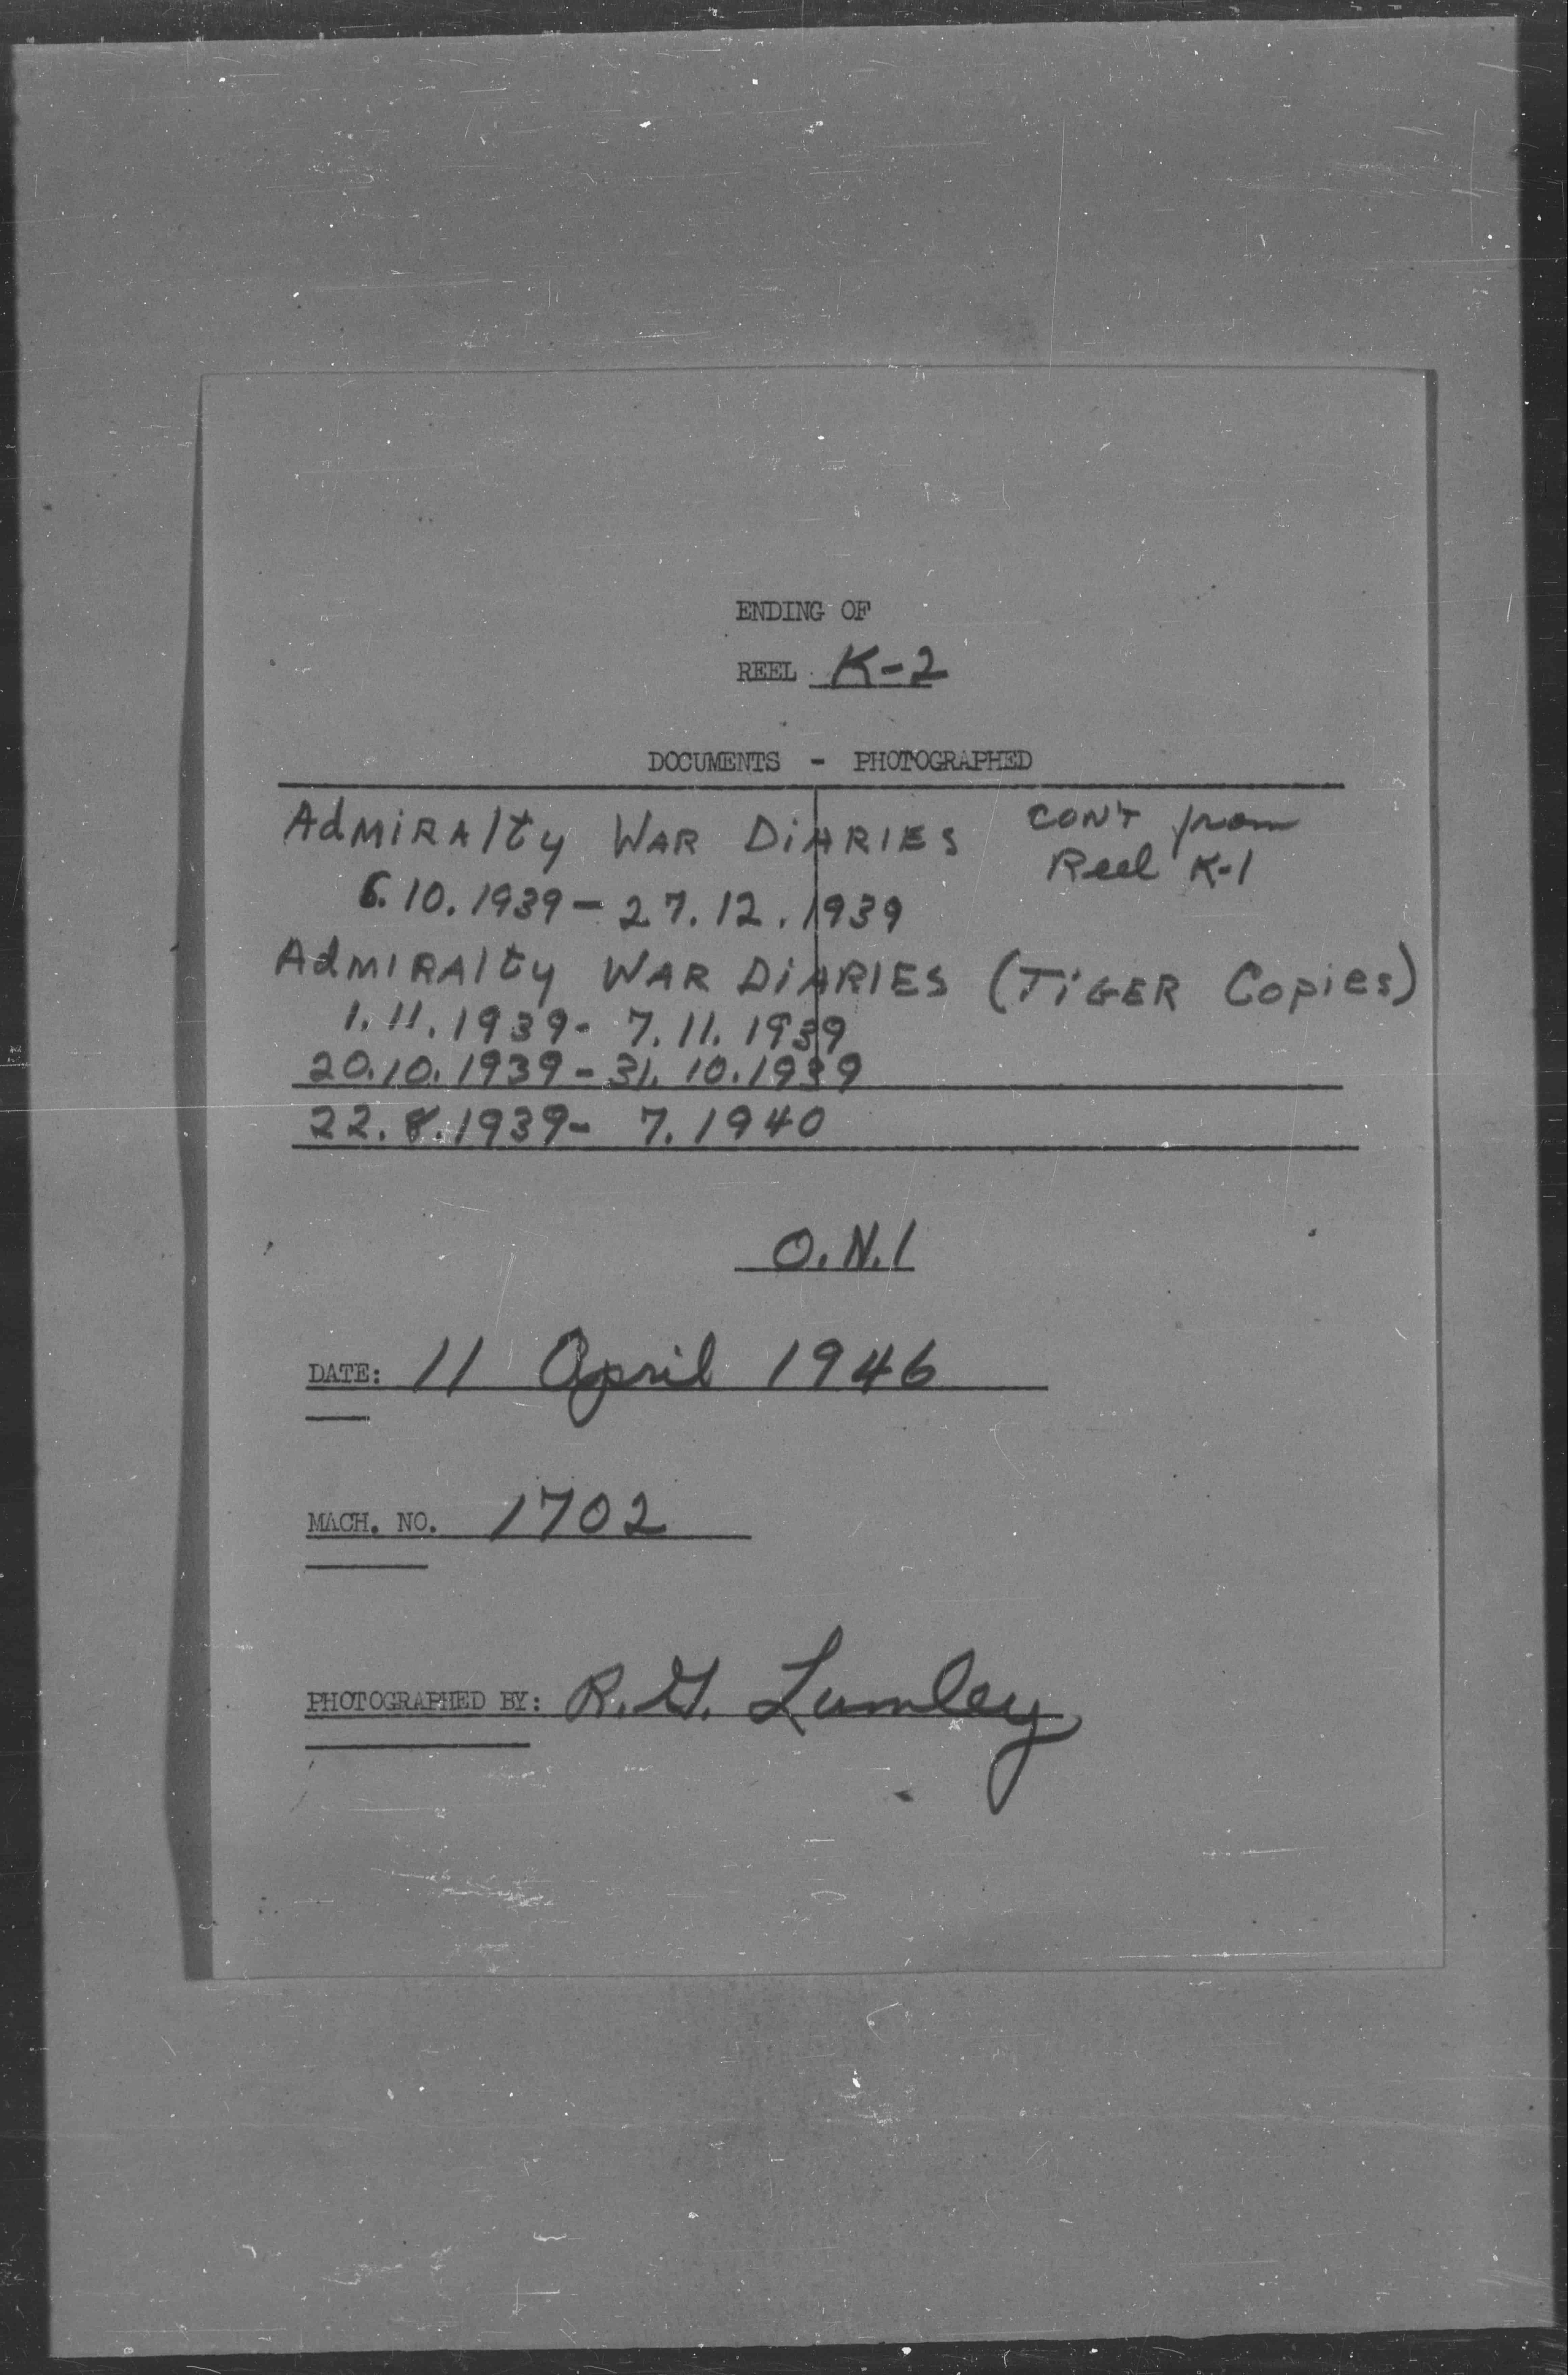 ENDING OF
REEL K-2
DOCUMENTS - PHOTOGRAPHED
AdMiRAlty WAR DiARIES CON'T from
Reel K-1
6.10.1939 - 27.12.1939
AdMIRAlty WAR DiARIES (TiGER Copies)
1.11.1939- 7.11.1939
20.10.1939 - 31.10.1939
22.8.1939- 7.1940
O.N.I
DATE: 11 April 1946
MACH. NO. 1702
PHOTOGRAPHED BY: R.G. Lumley